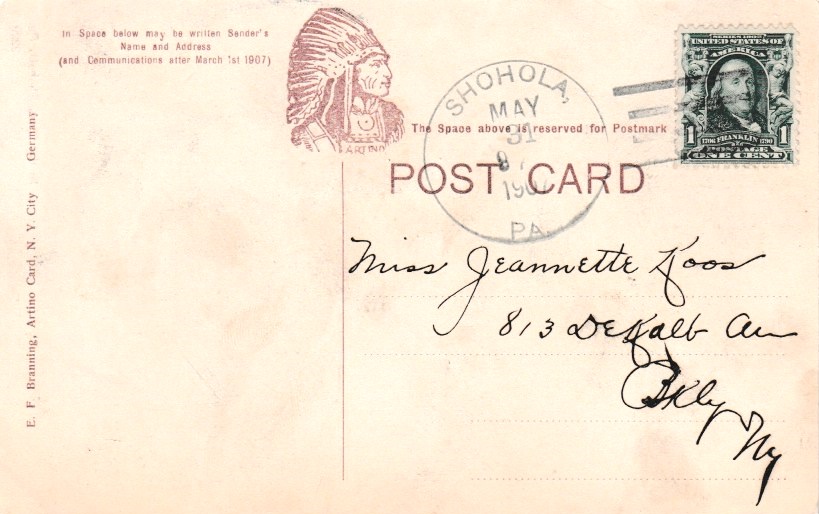 In Space below may be written Sender's
Name and Address
(and Communications after March 1st 1907)
ARTINO
The Space above is reserved for Postmark
POST CARD
SHOHOLA,
MAY
31
1907
PA.
SERIES 1902
UNITED STATES OF
AMERICA
1 1706 FRANKLIN 1790 1
POSTAGE
ONE CENT
Miss Jeannette Koos
813 DeKalb Av
Bkly
Ny
E. F. Branning, Artino Card, N. Y. City Germany